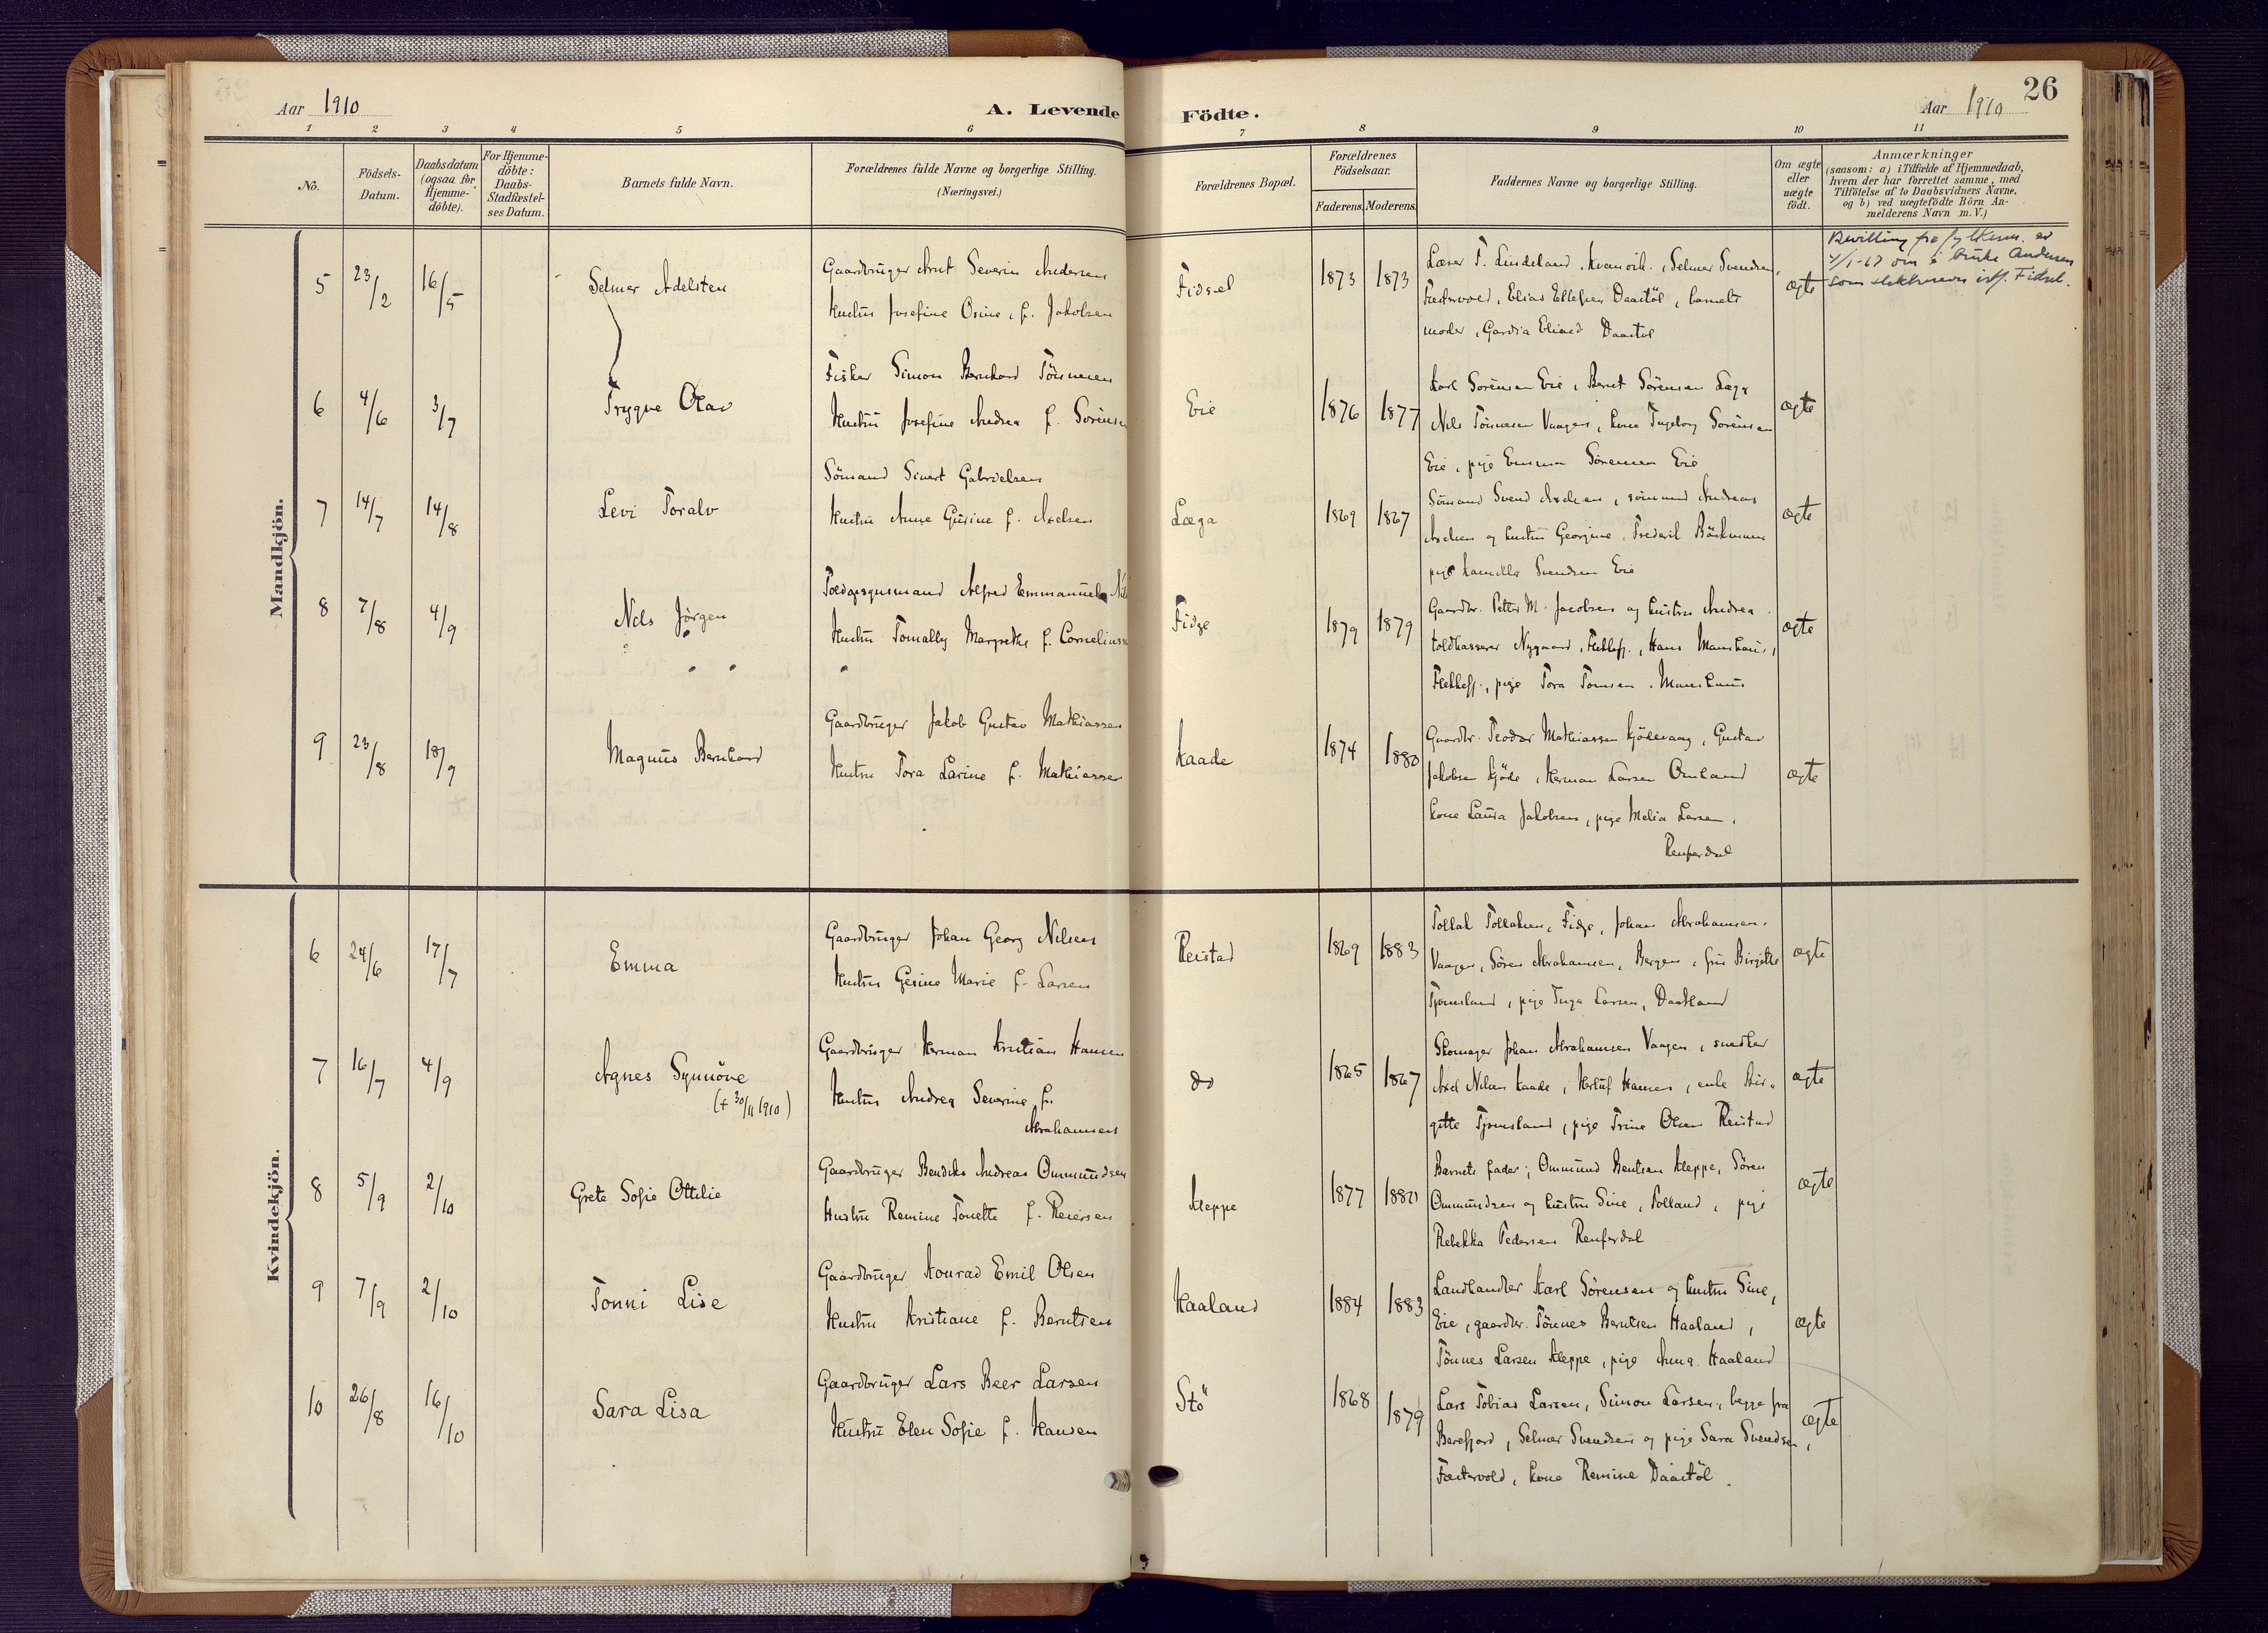 Aar 1910
A. Levende Födte.
Aar 1910
26
1 2 3 4 5 6 7 8 9 10 11
No.
Födsels-Datum.
Daabsdatum (ogsaa for Hjemme-döbte).
For Hjemme-döbte: Daabs-Stadfæstel-ses Datum.
Barnets fulde Navn.
Forældrenes fulde Navne og borgerlige Stilling.
(Næringsvei.)
Forældrenes Bopæl.
Forældrenes Födselsaar.
Faderens. Moderens.
Faddernes Navne og borgerlige Stilling.
Om ægte eller uægte födt.
Anmærkninger
(saasom: a) i Tilfælde af Hjemmedaab,
hvem der har forrettet samme, med
Tilföielse af to Daabsvidners Navne,
og b) ved uægtefödte Börn An-
melderens Navn m. V.)
Mandkjön.
5 23/2 16/5 Selmer Adelsten
Gaardbruger Arnt Severin Andersen
Hustru Josefine Osine, f. Jakobsen
Fidsel 1873 1873
Lærer T. Lindeland, Kvanvik, Selmer Svendsen,
Fæstervold, Elias Ellefsen Daastöl, barnets
moder, Gardia Elined Daastöl
ægte
Bevilling fra fylkesm. av
4/1-67 om å bruke Andersen
som slektsnavn istf. Fidsel.
6 4/6 3/7 Trygve Olav
Fisker Simon Bernhard Tönnesen
Hustru Josefine Andrea f. Sörensen
Eie 1876 1877
Karl Sörensen Eie, Bernt Sörensen Læga
Nils Tönnesen Vaagen, kone Ingeborg Sörensen
Eie, pige Emma Sörensen Eie
ægte
7 14/7 14/8 Levi Toralv
Sömand Sivert Gabrielsen
Hustru Anne Gusine f. Axelsen
Læga 1869 1867
Sömand Svend Axelsen, sömand Andreas
Axelsen og hustru Georgine, Frederik Böckmann
pige Kamilla Svendsen Eie
ægte
8 7/8 4/9 Nils Jörgen
Toldopsynsmand Alfred Emmanuel
Hustru Tomally Margrethe f. Cornelius
Fidje 1879 1879
Gaardbr. Petter M. Jacobsen og hustru Andrea
toldkasserer Nygaard, Flekkefj., Hans Maushaus,
Flekkefj., pige Tora Tomsen, Maushaus
ægte
9 23/8 18/9 Magnus Bernhard
Gaardbruger Jakob Gustav Mathiassen
Hustru Tora Larine f. Mathiassen
Kaade 1874 1880
Gaardbr. Teodor Mathiassen Kjödevaag, Gustav
Jakobsen Kjöde, Herman Larsen Omland
kone Laura Jakobsen, pige Melia Larsen,
Renferdal
ægte
Kvindekjön.
6 24/6 17/7 Emma
Gaardbruger Johan Georg Nilsen
Hustru Gesine Marie f. Larsen
Reistad 1869 1883
Tollak Tollaksen, Fidje, Johan Abrahamsen,
Vaagen, Sören Abrahamsen, Bergen, fru Birgitte
Tjomsland, pige Inga Larsen, Daatland
ægte
7 16/7 4/9 Agnes Synnöve
(+ 30/11 1910)
Gaardbruger Herman Kristian Hansen
Hustru Andrea Severine f.
Abrahamsen
do 1865 1867
Skomager Johan Abrahamsen Vaagen, snedker
Axel Nilsen Kaade, Herluf Hansen, enke Bir-
gitte Tjomsland, pige Trine Olsen Reistad
ægte
8 5/9 2/10 Grete Sofie Ottilie
Gaardbruger Bendiks Andreas Ommundsen
Hustru Remine Tonette f. Reiersen
Kleppe 1877 1880
Barnets fader, Ommund Bentsen Kleppe, Sören
Ommundsen og hustru Sine, Tolland, pige
Rebekka Pedersen Renferdal
ægte
9 7/9 2/10 Tonni Lise
Gaardbruger Konrad Emil Olsen
Hustru Kristiane f. Berntsen
Haaland 1884 1883
Landhandler Karl Sörensen og hustru Sine,
Eie, gaardbr. Tönnes Berntsen Haaland,
Tönnes Larsen Kleppe, pige Anna Haaland
ægte
10 26/8 16/10 Sara Lisa
Gaardbruger Lars Beer Larsen
Hustru Elen Sofie f. Hansen
Stö 1868 1879
Lars Tobias Larsen, Simon Larsen, begge fra
Berefjord, Selmer Svendsen og pige Sara Svendsen,
Fæstervold, kone Remine Daastöl.
ægte